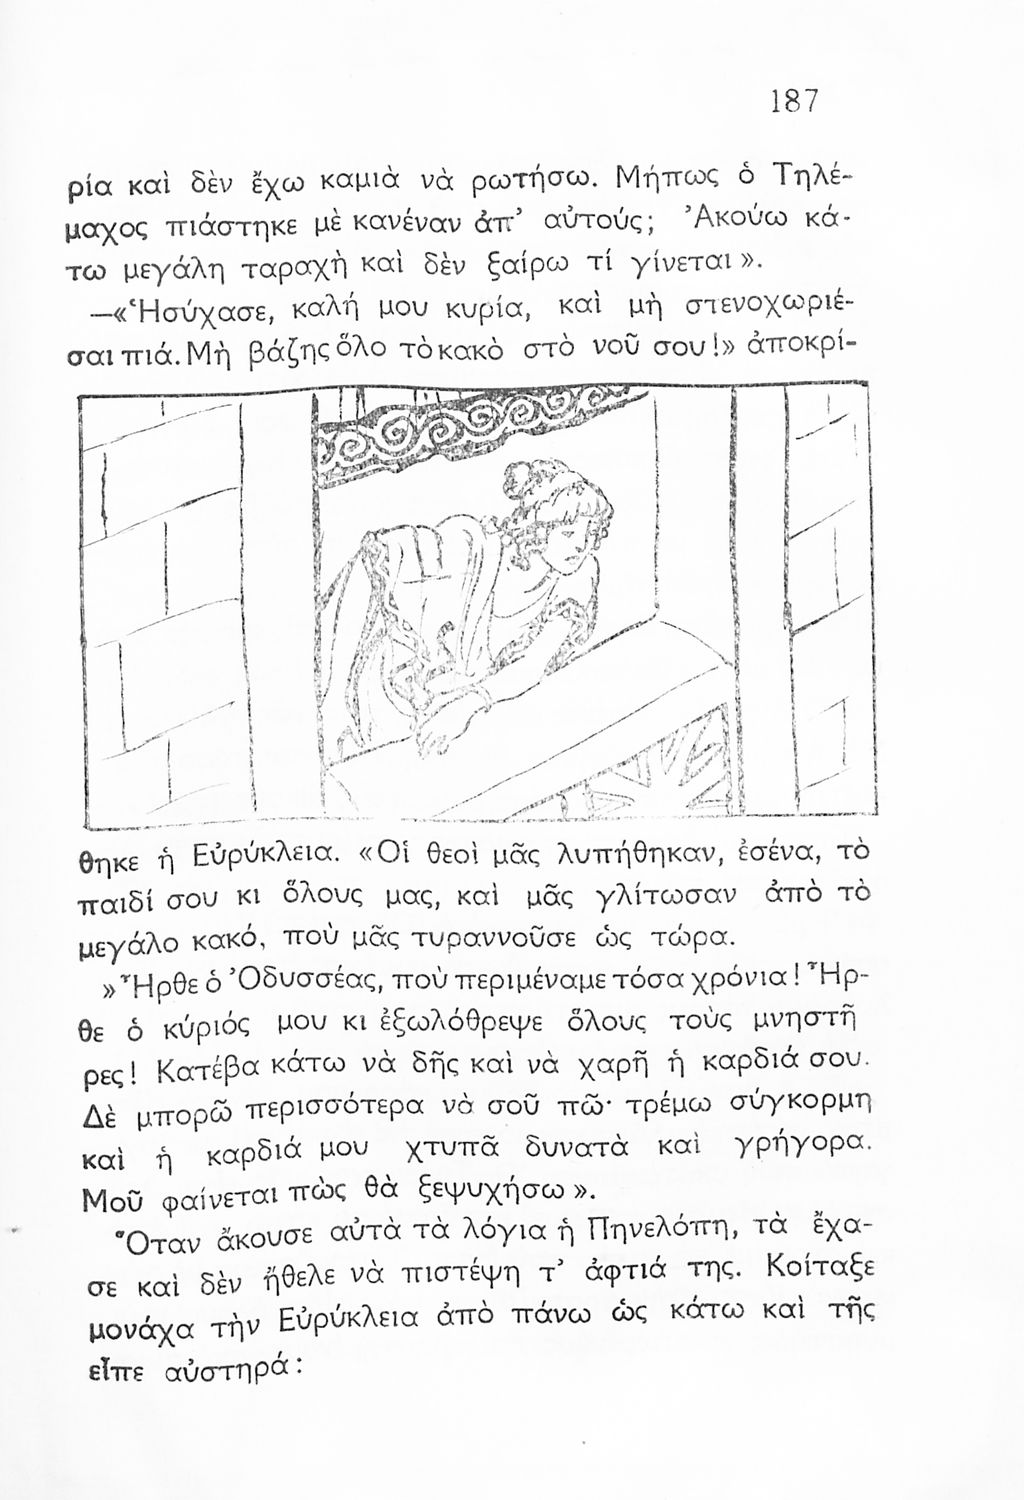 187
ρία καὶ δὲν ἔχω καμιὰ νὰ ρωτήσω. Μήπως ὁ Τηλέ-
μαχος πιάστηκε μὲ κανέναν ἀπ᾿ αὐτούς; Ἀκούω κά-
τω μεγάλη ταραχὴ καὶ δὲν ξαίρω τί γίνεται».
—«Ἡσύχασε, καλή μου κυρία, καὶ μὴ στενοχωριέ-
σαι πιά. Μὴ βάζης ὅλο τὸ κακὸ στὸ νοῦ σου!» ἀποκρί-
θηκε ἡ Εὐρύκλεια. «Οἱ θεοὶ μᾶς λυπήθηκαν, ἐσένα, τὸ
παιδί σου κι ὅλους μας, καὶ μᾶς γλίτωσαν ἀπὸ τὸ
μεγάλο κακό, ποὺ μᾶς τυραννοῦσε ὡς τώρα.
»Ἦρθε ὁ Ὀδυσσέας, ποὺ περιμέναμε τόσα χρόνια! Ἦρ-
θε ὁ κύριός μου κι ἐξωλόθρεψε ὅλους τοὺς μνηστῆ
ρες! Κατέβα κάτω νὰ δῆς καὶ νὰ χαρῆ ἡ καρδιά σου.
Δὲ μπορῶ περισσότερα νὰ σοῦ πῶ· τρέμω σύγκορμη
καὶ ἡ καρδιά μου χτυπᾶ δυνατὰ καὶ γρήγορα.
Μοῦ φαίνεται πὼς θὰ ξεψυχήσω».
Ὅταν ἄκουσε αὐτὰ τὰ λόγια ἡ Πηνελόπη, τὰ ἔχα-
σε καὶ δὲν ἤθελε νὰ πιστέψη τ᾿ ἀφτιά της. Κοίταξε
μονάχα τὴν Εὐρύκλεια ἀπὸ πάνω ὡς κάτω καὶ τῆς
εἶπε αὐστηρά: